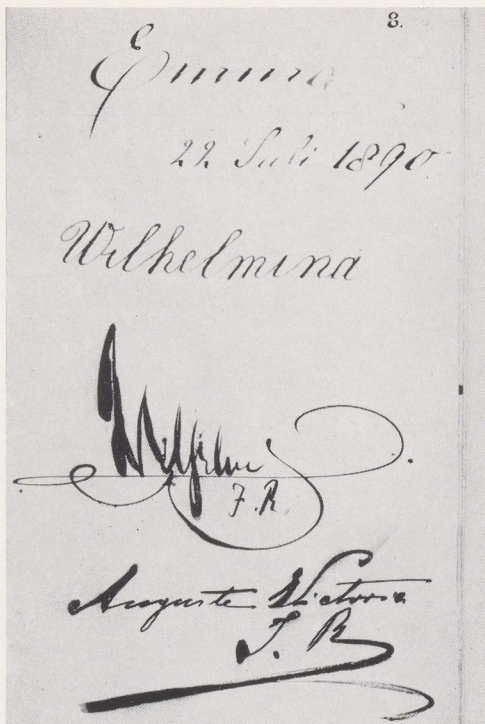 8.
Emma
22 Juli 1890
Wilhelmina
Wilhelm
J. R
Auguste Victoria
J. R